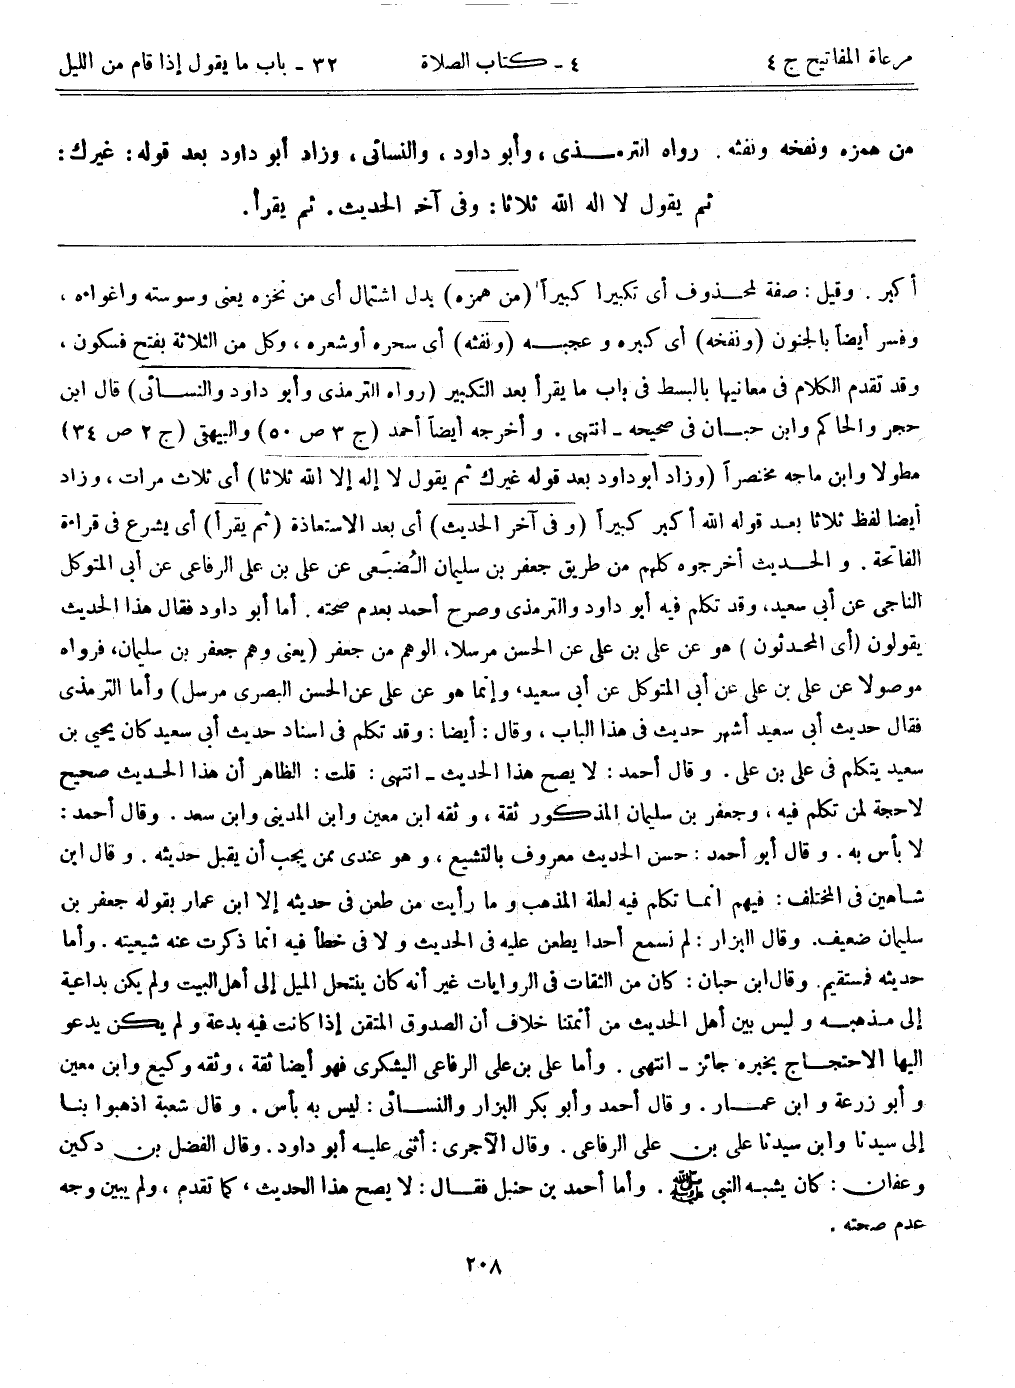 مرعاة المفاتيح ج ٤ ٤ ـ كتاب الصلاة ٣٢ ـ باب ما يقول إذا قام من الليل
من همزه ونفخه ونفثه . رواه الترمـذى ، وأبو داود ، والنسائى ، وزاد أبو داود بعد قوله : غيرك :
ثم يقول لا اله الله ثلاثا : وفى آخر الحديث . ثم يقرأ .
أكبر . وقيل : صفة لمحـذوف أى تكبيرا كبيراً (من همزه) بدل اشتمال أى من نخزه يعنى وسوسته واغوائه ،
وفسر أيضاً بالجنون (ونفخه) أى كبره و عجبـه (ونفثه) أى سحره أوشعره ، وكل من الثلاثة بفتح فسكون ،
وقد تقدم الكلام فى معانيها بالبسط فى باب ما يقرأ بعد التكبير (رواه الترمذى وأبو داود والنسـائى) قال ابن
حجر والحاكم وابن حبـان فى صحيحه ـ انتهى . و أخرجه أيضاً أحمد (ج ٣ ص ٥٠) والبيهقى (ج ٢ ص ٣٤)
مطولا وابن ماجه مختصراً (وزاد أبوداود بعد قوله غيرك ثم يقول لا إله إلا الله ثلاثا) أى ثلاث مرات ، وزاد
أيضا لفظ ثلاثا بعـد قوله الله أكبر كبيراً (و فى آخر الحديث) أى بعد الاستعاذة (ثم يقرأ) أى يشرع فى قراءة
الفاتحة . و الحـديث أخرجوه كلهم من طريق جعفر بن سليمان الضبعى عن على بن على الرفاعى عن أبى المتوكل
الناجى عن أبى سعيد، وقد تكلم فيه أبو داود والترمذى وصرح أحمد بعدم صحته . أما أبو داود فقال هذا الحديث
يقولون (أى المحدثون ) هو عن على بن على عن الحسن مرسلا، الوهم من جعفر (يعنى وهم جعفر بن سليمان، فرواه
موصولا عن على بن على عن أبى المتوكل عن أبى سعيد، وإنما هو عن على عن الحسن البصرى مرسل) وأما الترمذى
فقال حديث أبى سعيد أشهر حديث فى هذا الباب ، وقال : أيضا : وقد تكلم فى اسناد حديث أبى سعيد كان يحيى بن
سعيد يتكلم فى على بن على . و قال أحمد : لا يصح هذا الحديث ـ انتهى : قلت : الظاهر أن هذا الحـديث صحيح
لاحجة لمن تكلم فيه ، وجعفر بن سليمان المذكور ثقة ، و ثقه ابن معين وابن المدينى وابن سعد . وقال أحمد :
لا بأس به . و قال أبو أحمد : حسن الحديث معروف بالتشيع ، و هو عندى ممن يجب أن يقبل حديثه . و قال ابن
شاهين فى المختلف : فيهم انمـا تكلم فيه لعلة المذهب و ما رأيت من طعن فى حديثه إلا ابن عمار بقوله جعفر بن
سليمان ضعيف. وقال البزار : لم نسمع أحدا يطعن عليه فى الحديث و لا فى خطأ فيه انما ذكرت عنه شيعيته . وأما
حديثه فمستقيم. وقال ابن حبان : كان من الثقات فى الروايات غير أنه كان ينتحل الميل إلى أهل البيت ولم يكن بداعية
إلى مـذهبـه و ليس بين أهل الحديث من أئمتنا خلاف أن الصدوق المتقن إذا كانت فيه بدعة و لم يكن يدعو
اليها الاحتجـاج بخبره جائز ـ انتهى . وأما على بن على الرفاعى اليشكرى فهو أيضا ثقة ، وثقه وكيع وابن معين
و أبو زرعة و ابن عمـار . و قال أحمد وأبو بكر البزار والنسـائى : ليس به بأس . و قال شعبة اذهبوا بنـا
إلى سيدنا وابن سيدنا على بن على الرفاعى . وقال الآجرى : أثنى عليـه أبو داود . وقال الفضل بن دكين
و عفان : كان يشبـه النبى ﷺ . وأما أحمد بن حنبل فقـال : لا يصح هذا الحديث ، كما تقدم ، ولم يبين وجه
عدم صحته .
٢٠٨